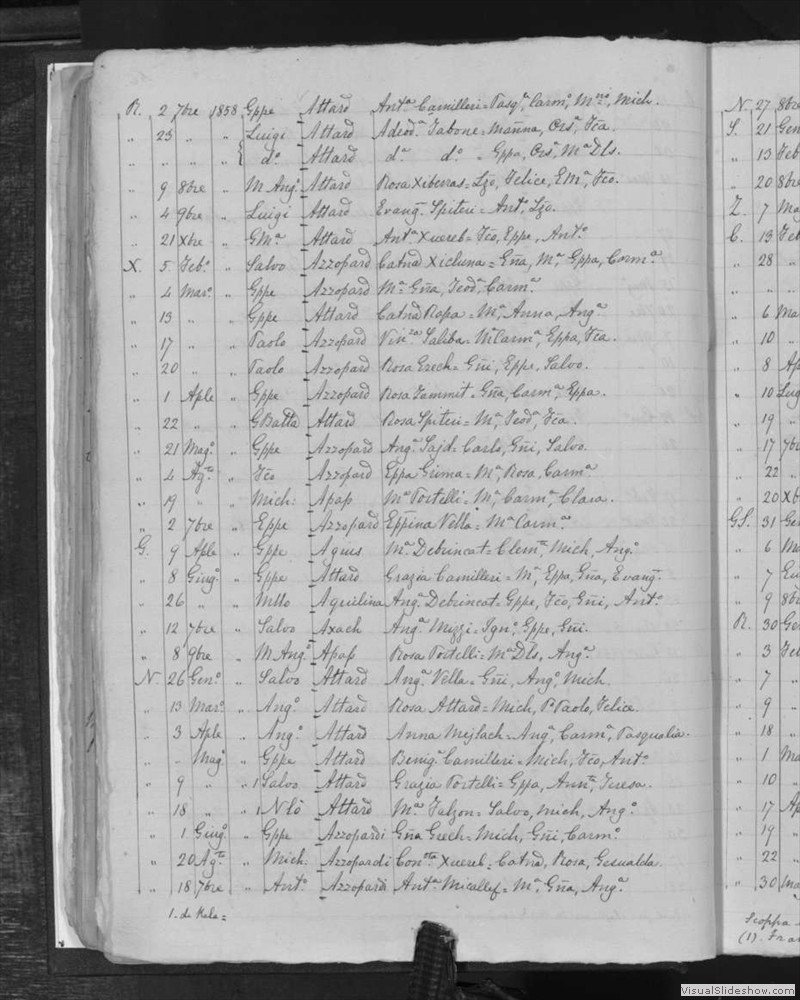 R. 2 7bre 1858 Gppe Attard Antª Camilleri = Pasqª, Carmº, Mich.
„ 23 „ „ Luigi Attard Adeodª Tabone = Crsª, Fca.
„ „ „ „ dº Attard dª dº „ Gppa, Crsª, Mª Dls.
„ 9 8bre „ M Angº Attard Rosa Xiberras = Lzo, Felice, EMª, Fco.
„ 4 9bre „ Luigi Attard Evangª Spiteri = Antº, Lzo.
„ 21 Xbre „ GMª Attard Antª Xuereb = Fco, Eppe, Antº
X. 5 Febº „ Salvo Azzopard Catna Xicluna = Gña, Mª, Gppa, Carmª
„ 4 Marº „ Gppe Azzopard Mª Gña, Teodª, Carmª
„ 13 „ „ Gppe Attard Catna Rapa = Mª, Anna, Angª
„ 17 „ „ Paolo Azzopard Saliba = Mª Carmª, Eppa, Fca.
„ 20 „ „ Paolo Azzopard Rosa Grech = Gñi, Eppe, Salvo.
„ 1 Aple „ Gppe Azzopard Rosa Tammit = Gña, Carmª, Eppa.
„ 22 „ „ GBatta Attard Rosa Spiteri = Mª, Teodª, Fca.
„ 21 Magº „ Gppe Azzopard Angª Sajd = Carlo, Gñi, Salvo.
„ 4 Agto „ Fco Azzopard Eppa Grima = Mª, Rosa, Carmª
„ 19 „ „ Mich: Apap Mª Portelli = Mª, Carmª, Clara.
„ 2 7bre „ Eppe Azzopard Eppina Vella = Mª Carmª
G. 9 Aple „ Gppe Agius Mª Debrincat = Clemte, Mich, Angº
„ 8 Giugº „ Gppe Attard Grazia Camilleri = Mª, Eppa, Gña, Evangª
„ 26 „ „ Mllo Aquilina Angª Debrincat = Gppe, Fco, Gñi, Antº
„ 12 7bre „ Salvo Axach Angª Mizzi = Ignº, Gppe, Gñi.
„ 8 9bre „ M Angº Apap Rosa Portelli = Mª Dls, Angª
N. 26 Genº „ Salvo Attard Angª Vella = Gñi, Angº, Mich.
„ 13 Marº „ Angº Attard Rosa Attard = Mich, P. Paolo, Felice.
„ 3 Aple „ Angº Attard Anna Mejlach = Angª, Carmª, Pasqualia.
„ „ Magº „ Gppe Attard Benigª Camilleri = Mich, Fco, Antº
„ 9 „ „ 1 Salvo Attard Grazia Portelli = Gppa, Annª, Teresa.
„ 18 „ „ 1 Nlò Attard Mª Falzon = Salvo, Mich, Angº
„ 1 Giugº „ Gppe Azzopardi Gña Grech = Mich, Gñi, Carmº
„ 20 Agto „ Mich: Azzopardi Xuereb = Catna, Rosa, Gesualda.
„ 18 7bre „ Antº Azzopardi Antª Micallef = Mª, Gña, Angª
1. da Kala =
N. 27 8bre
S. 21 Gen
„ 13 Feb
„ 20 8bre
Z. 7 Ma
C. 13 Feb
„ 28 „
„ „ „
„ 6 Ma
„ 10 „
„ 8 Ap
„ 10 Lug
„ 19 „
„ 17 7br
„ 22 „
„ 20 Xb
GS. 31 Gen
„ 6 Ma
„ 7
„ 9 8b
R. 30 Ge
„ 3 Feb
„ 7 „
„ 9 „
„ 18 „
„ 1 Ma
„ 10 „
„ 17 Ap
„ 19 „
„ 22 „
„ 30 Ma
(1). Fra
VisualSlideshow.com